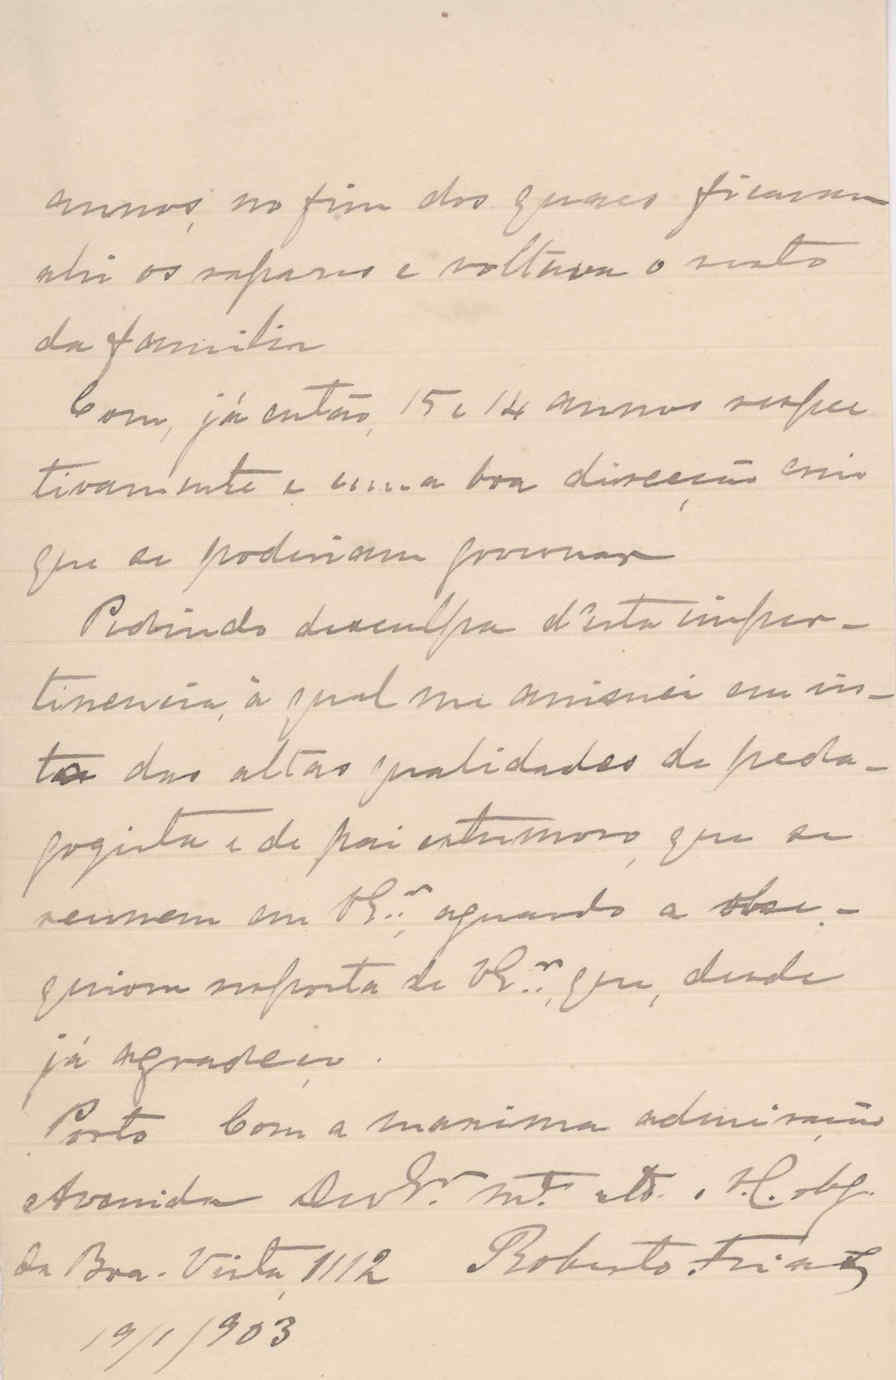 annos, no fim dos quaes ficavam
ahi os rapazes e voltava o resto
da familia
Com, já então, 15 e 14 annos respec
tivamente e uma boa direcção creio
que se poderiam governar
Pedindo desculpa d'esta imper-
tinencia, á qual me animei em vis-
ta das altas qualidades de peda-
gogista e de pai estremoso, que se
reunem em VEx.ª, aguardo a obse-
quiosa resposta de VEx.ª, que, desde
já agradeço.
Porto Com a maxima admiração
Avenida De VEx.ª m.to att.o V. obg.
da Boa-Vista, 1112 Roberto Frias
19/1/903